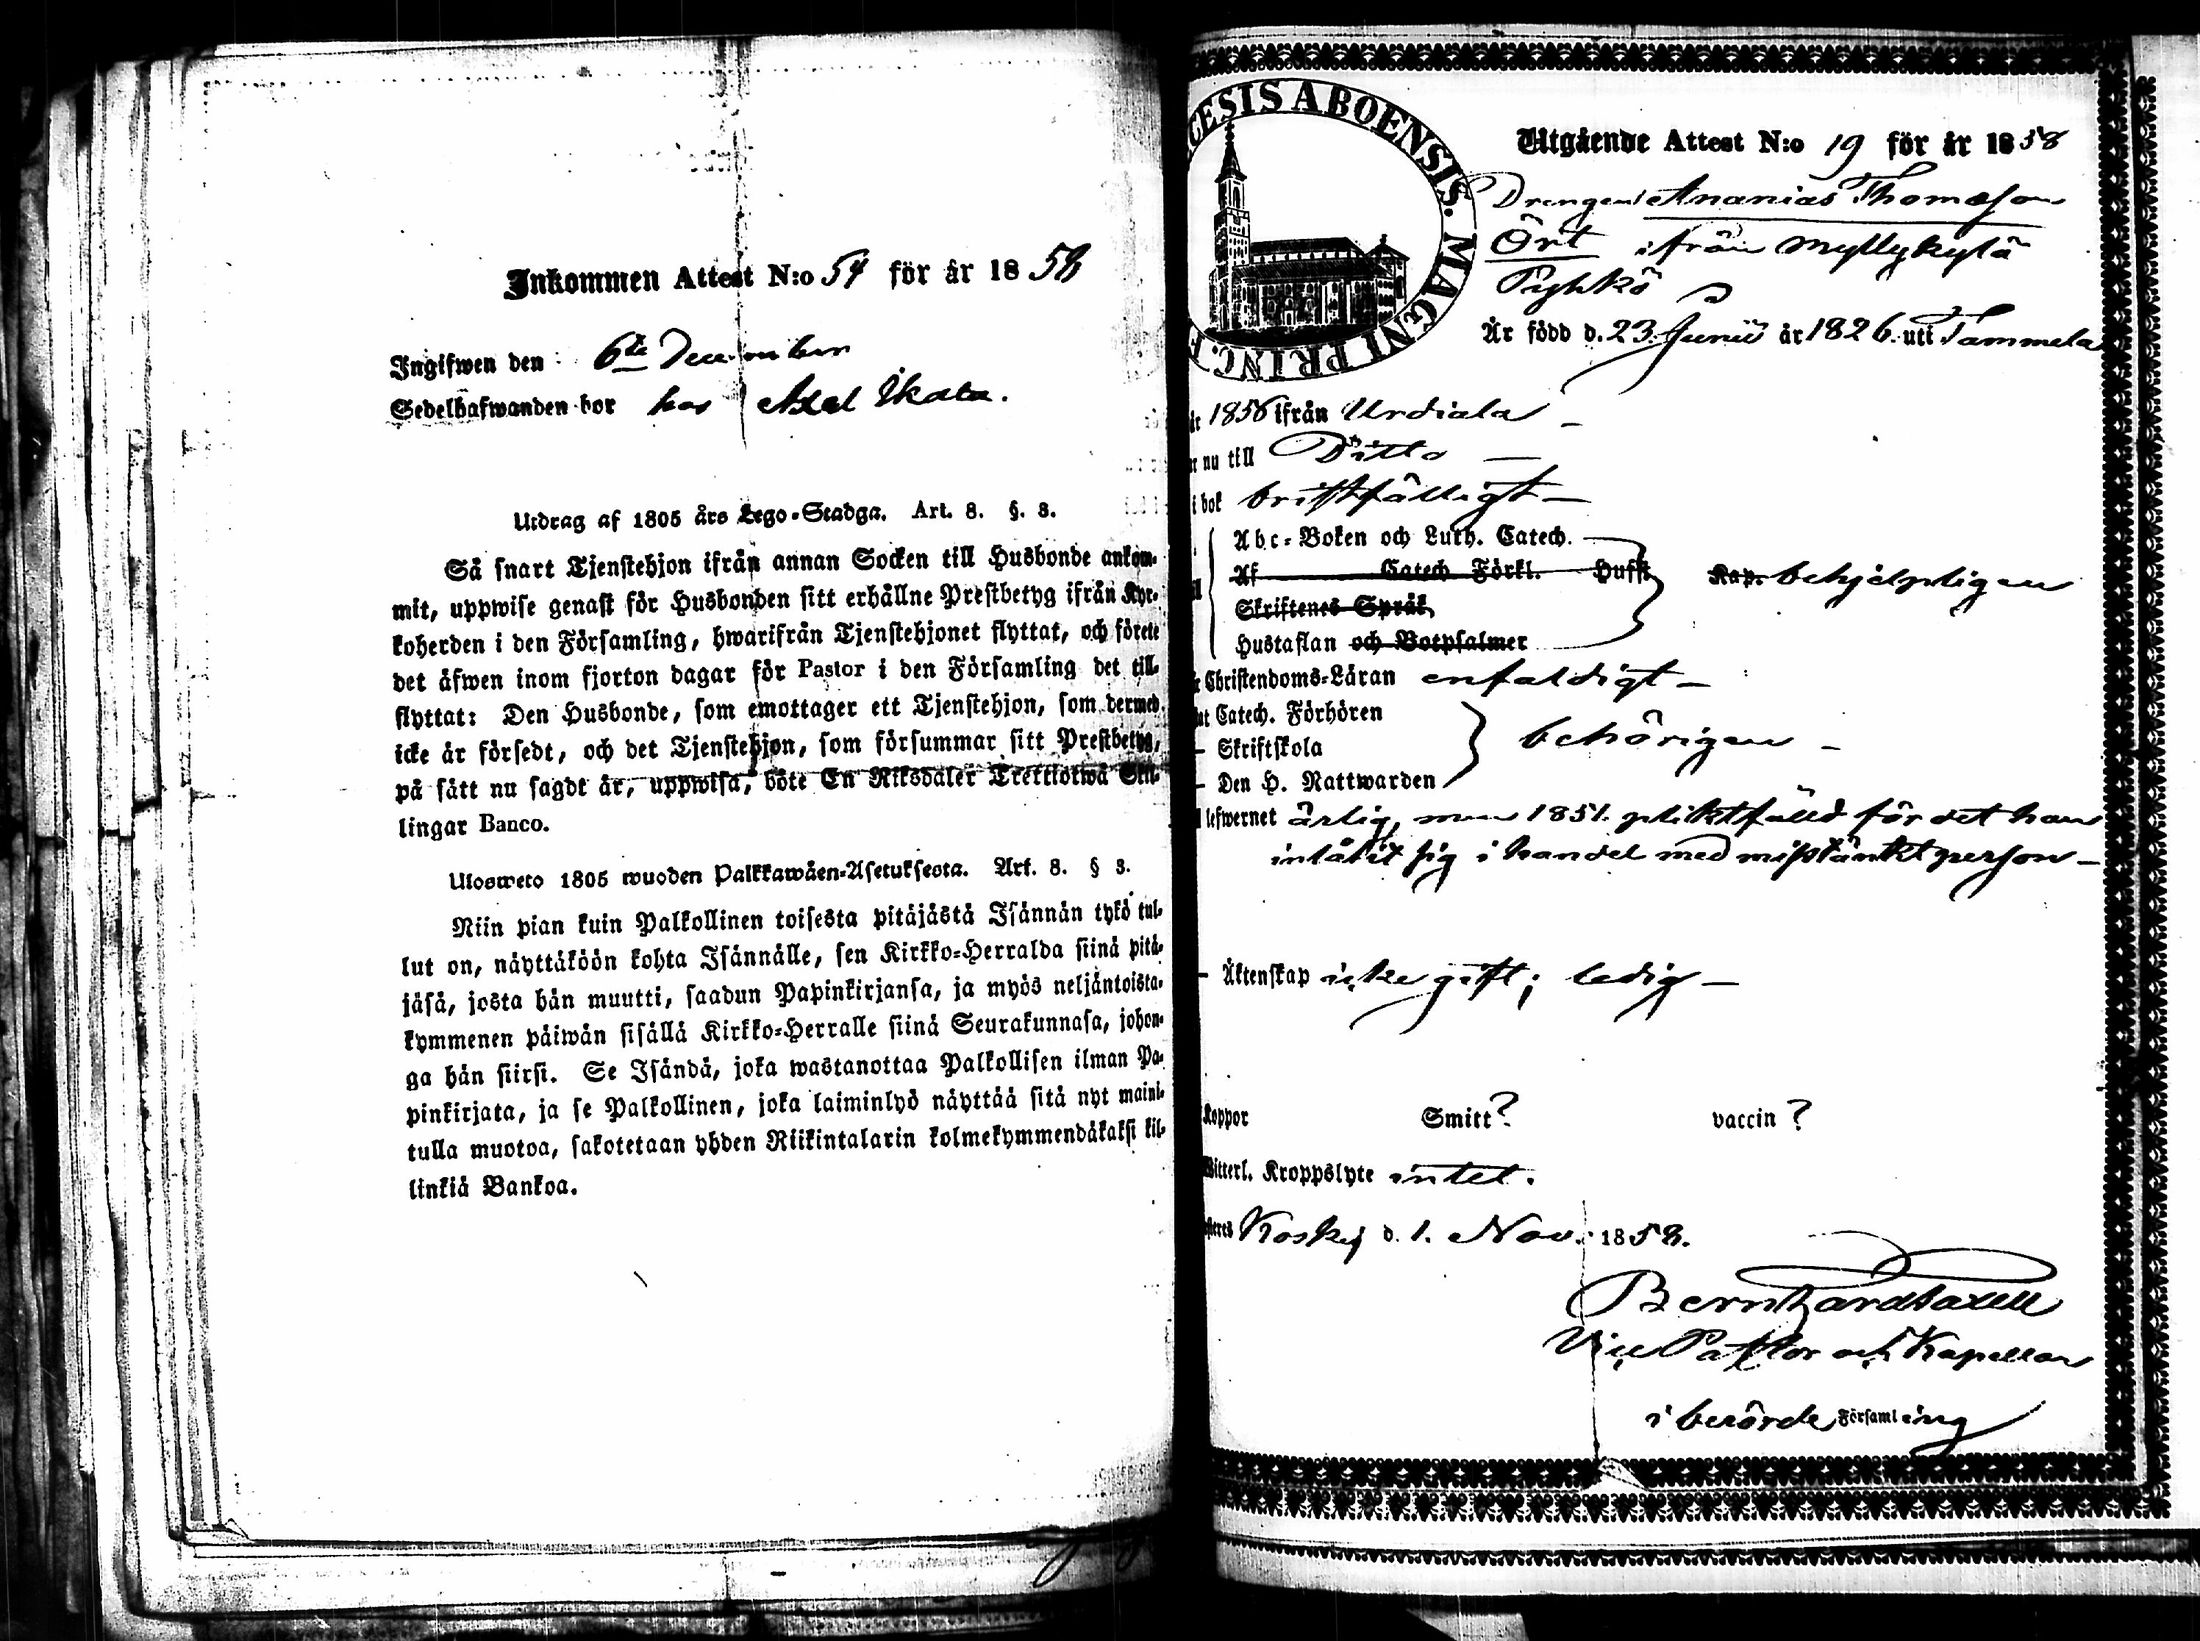 Inkommen Attest N:o 54 för år 1858
Ingifwen den 6te December
Sedelhafwanden bor hos Axel Ikala.
Utdrag af 1805 års Lego-Stadga. Art. 8. §. 3.
Så snart Tjenstehjon ifrån annan Socken till Husbonde ankom-
mit, uppwise genast för Husbonden sitt erhållne Prestbetyg ifrån Kyr-
koherden i den Församling, hwarifrån Tjenstehjonet flyttat, och förete
det äfwen inom fjorton dagar för Pastor i den Församling det till-
flyttat: Den Husbonde, som emottager ett Tjenstehjon, som dermed
icke är försedt, och det Tjenstehjon, som försummar sitt Prestbetyg,
på sätt nu sagdt är, uppwisa, böte En Riksdaler Trettiotwå Skil-
lingar Banco.
Ulosweto 1805 wuoden Palkkawäen-Asetuksesta. Art. 8. § 3.
Niin pian kuin Palkollinen toisesta pitäjästä Isännän tykö tul-
lut on, näyttäköön kohta Isännälle, sen Kirkko-Herralda siinä pitä-
jäsä, josta hän muutti, saadun Papinkirjansa, ja myös neljäntoista-
kymmenen päiwän sisällä Kirkko-Herralle siinä Seurakunnasa, johon-
ga hän siirsi. Se Isändä, joka wastanottaa Palkollisen ilman Pa-
pinkirjata, ja se Palkollinen, joka laiminlyö näyttää sitä nyt maini-
tulla muotoa, sakotetaan yhden Riikintalarin kolmekymmendäkaksi kil-
linkiä Bankoa.
CESIS ABOENSIS. MAGNI PRINC. F
Utgående Attest N:o 19 för år 1858
Drengen Ananias Thomæson
Ört ifrån Myllykylä
Pyhkö
Är född d. 23 Junii år 1826. uti Tammela
år 1856 ifrån Urdiala –
nu till Ditto –
i bok bristfälligt –
Abc-Boken och Luth. Catech.
Af Catech Förkl. Hufst Kap. behjelpligen
Skriftenes Språk
Hustaflan och Botpsalmer
Christendoms-Läran enfaldigt –
Catech. Förhören
– Skriftskola behörigen –
– Den H. Nattwarden
lefwernet ärlig, men 1851. pliktfälld för det han
inlåtit sig i handel med misstänkt person –
– Äktenskap icke gift; ledig –
Koppor Smitt? vaccin?
Witterl. Kroppslyte intet.
Koskij d. 1. Nov. 1858.
Bernhard Saxell
Vice Pastor och Kapellan
i berörde Församling